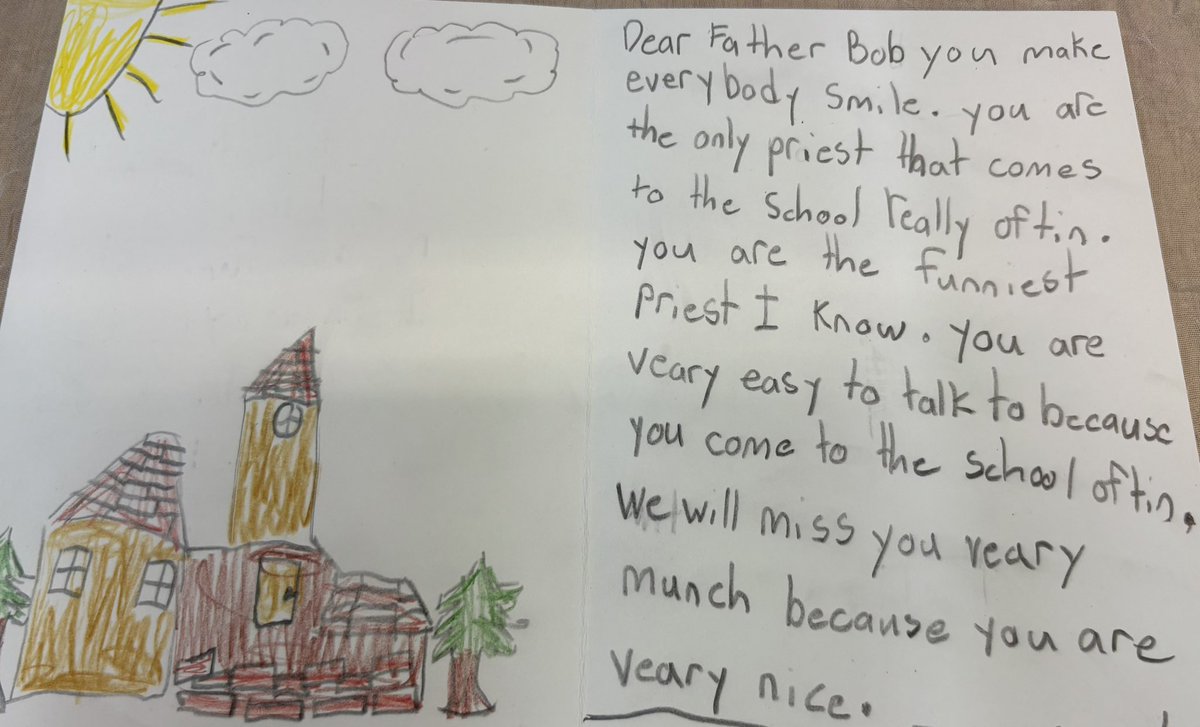 Dear Father Bob you make
everybody smile. you are
the only priest that comes
to the school really oftin.
you are the funniest
Priest I know. you are
veary easy to talk to because
you come to the school oftin.
We will miss you veary
munch because you are
veary nice.